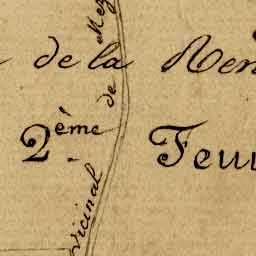 de la Ren
2ème Feui
Vicinal de Mez